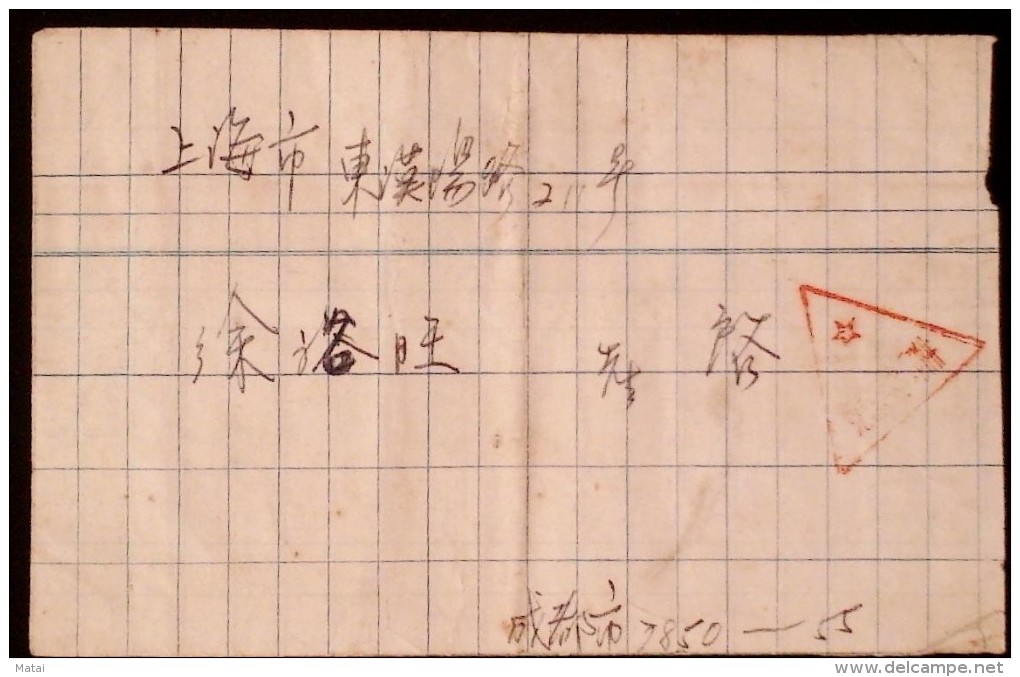 上海市東漢陽路211号
徐洛旺 先生 啓
成都市7850—55
Matai
delcampe.net